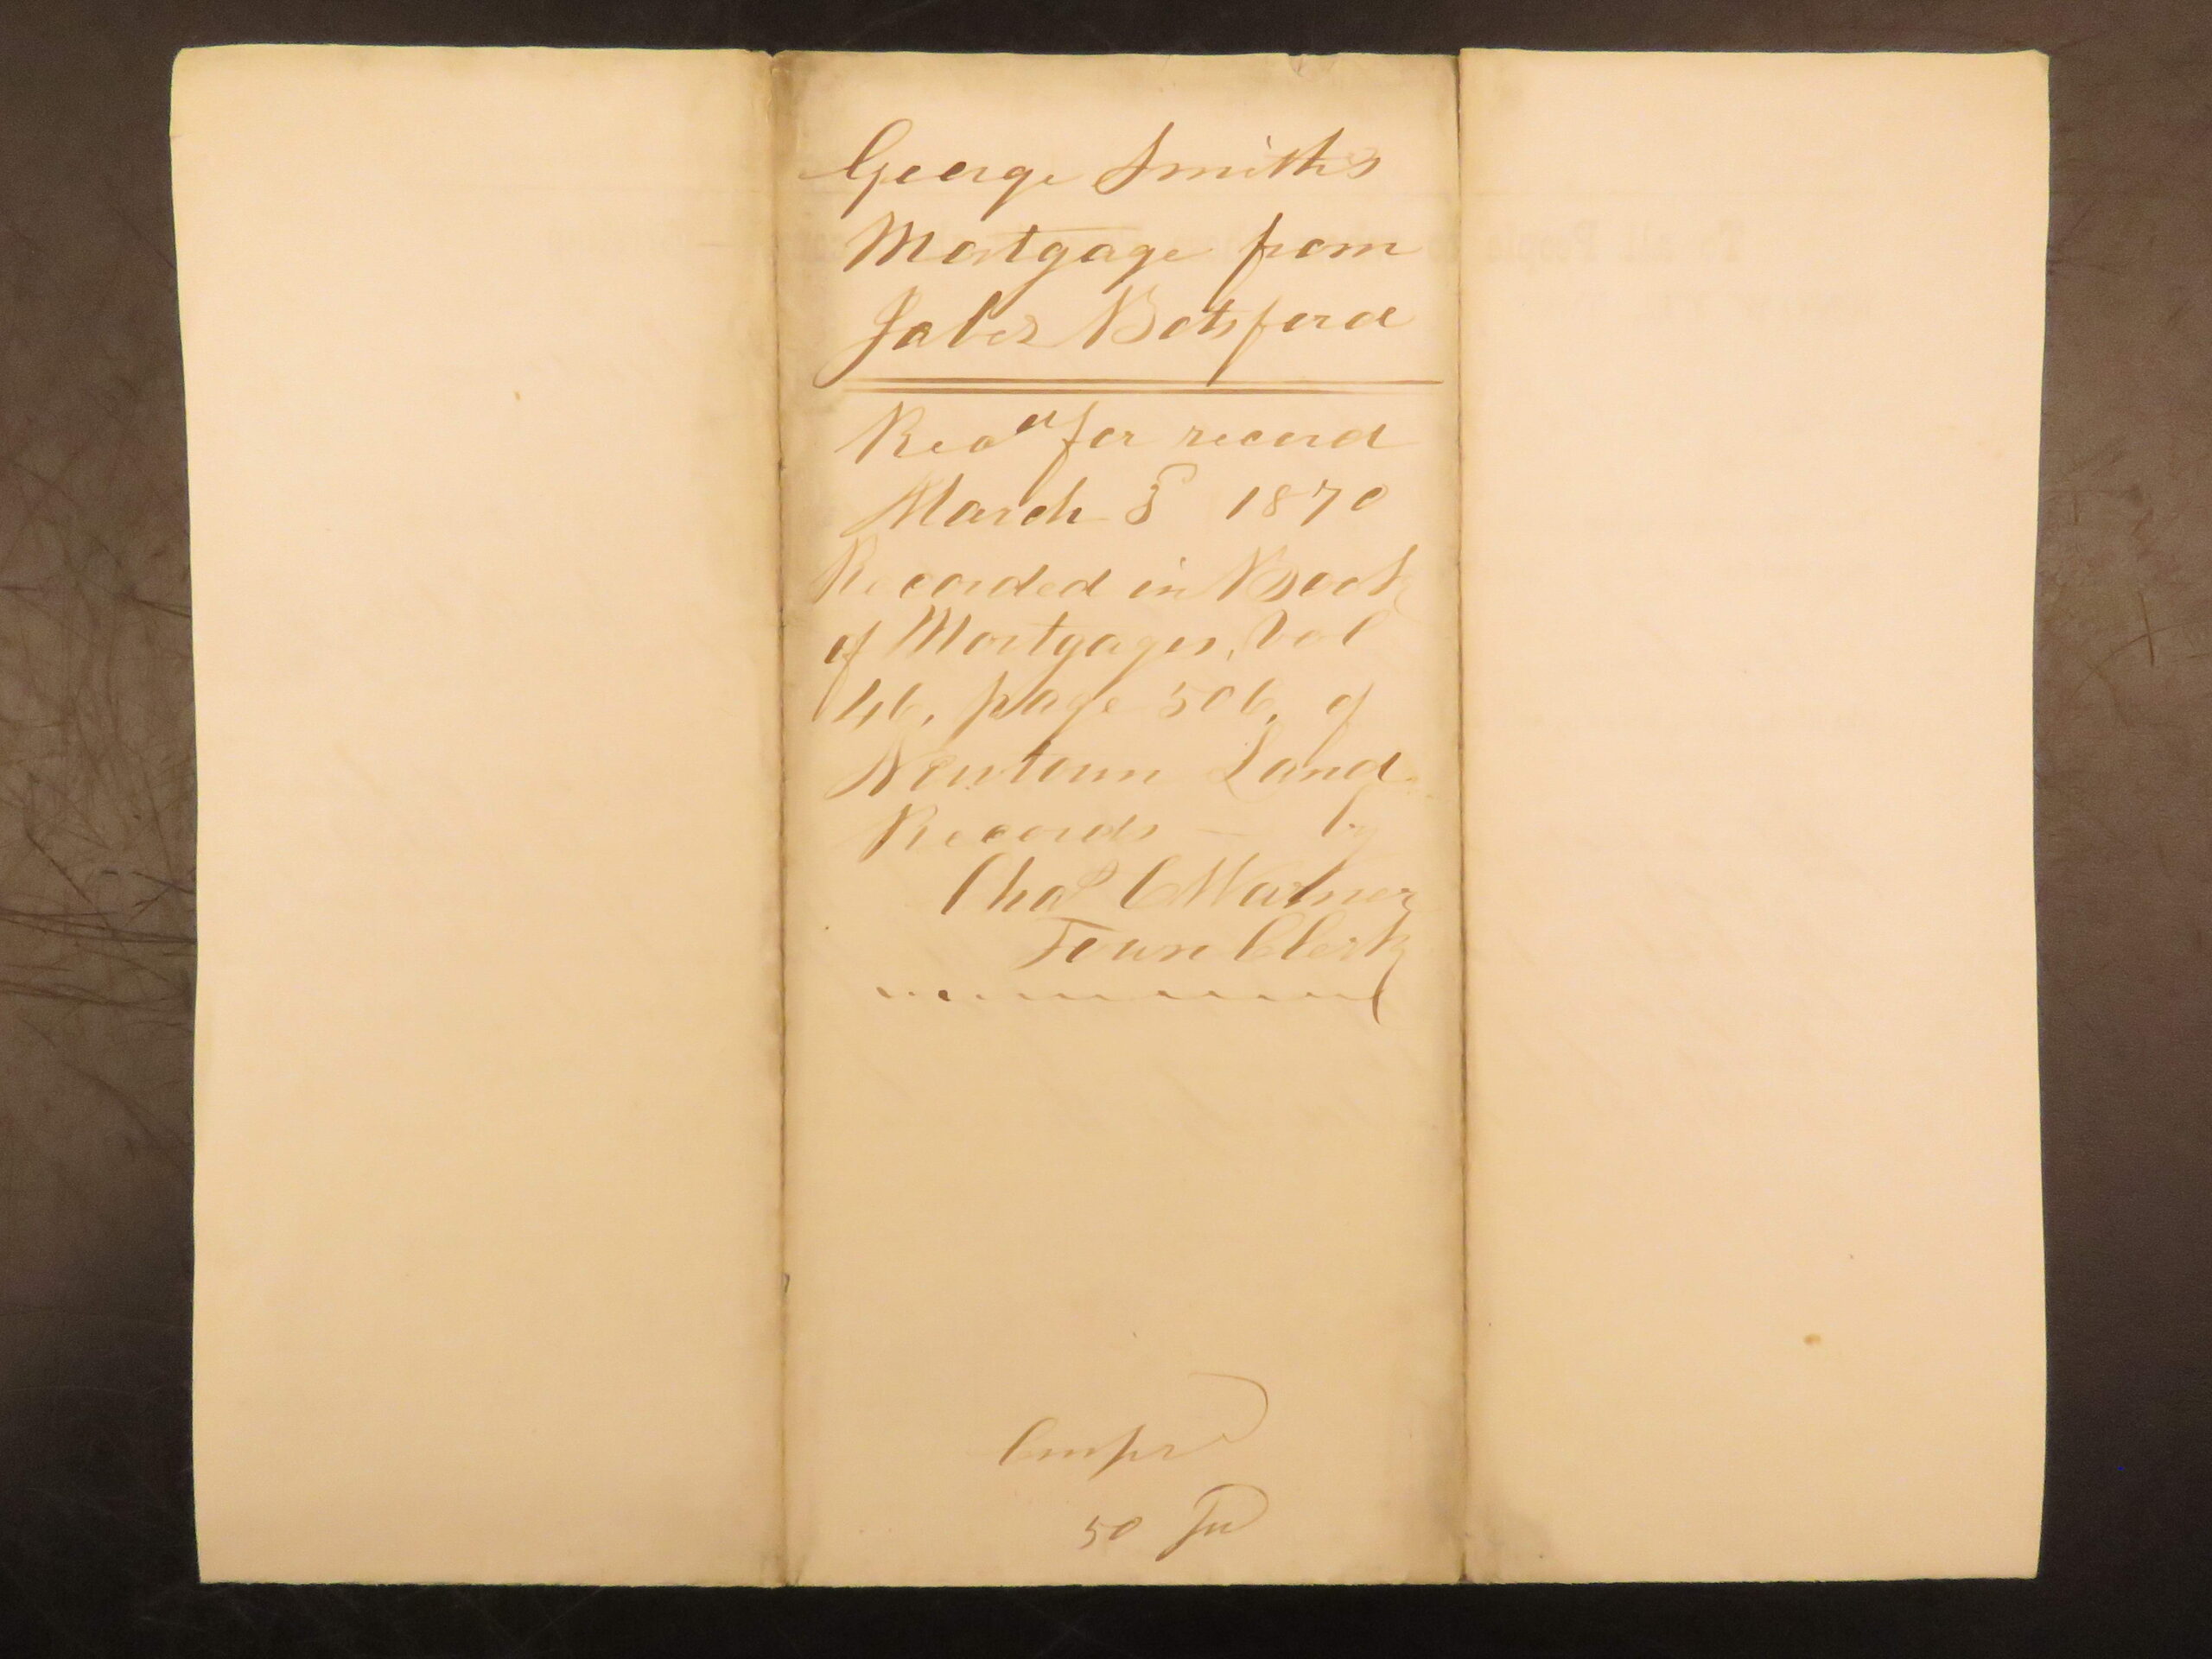 George Smith's
Mortgage from
Jabez Botsford
Recd for record
March 5 1870
Recorded in Book
of Mortgages, Vol
46, page 506, of
Newtown Land
Records — by
Chas C Warner
Town Clerk
50